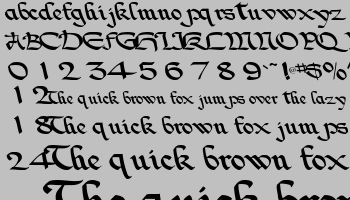 abcdefghijklmno pqrstuvwxyz
ABCDEFGHIJKLMNOPQ
0 1 2 3 4 5 6 7 8 9 ~ ! @#$%^
12 The quick brown fox jumps over the lazy
18 The quick brown fox jumps
24 The quick brown fox
The quick brow